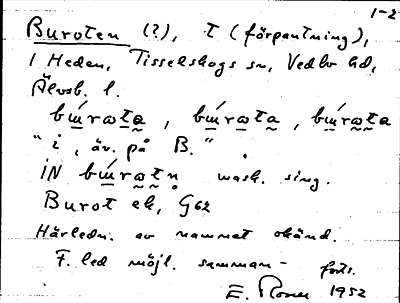 1-2
Buroten (?), t (förpantning),
i Heden, Tisselskogs sn, Vedbo hd,
Älvsb. l.
bɯ́rɷta, bɯ́rɷta, bɯ́rɷta
"i, äv. på B."
IN bɯ́rɷtn mask. sing.
Burot ek, G62
Härledn. av namnet okänd.
F. led möjl. samman- forts.
E. 1952